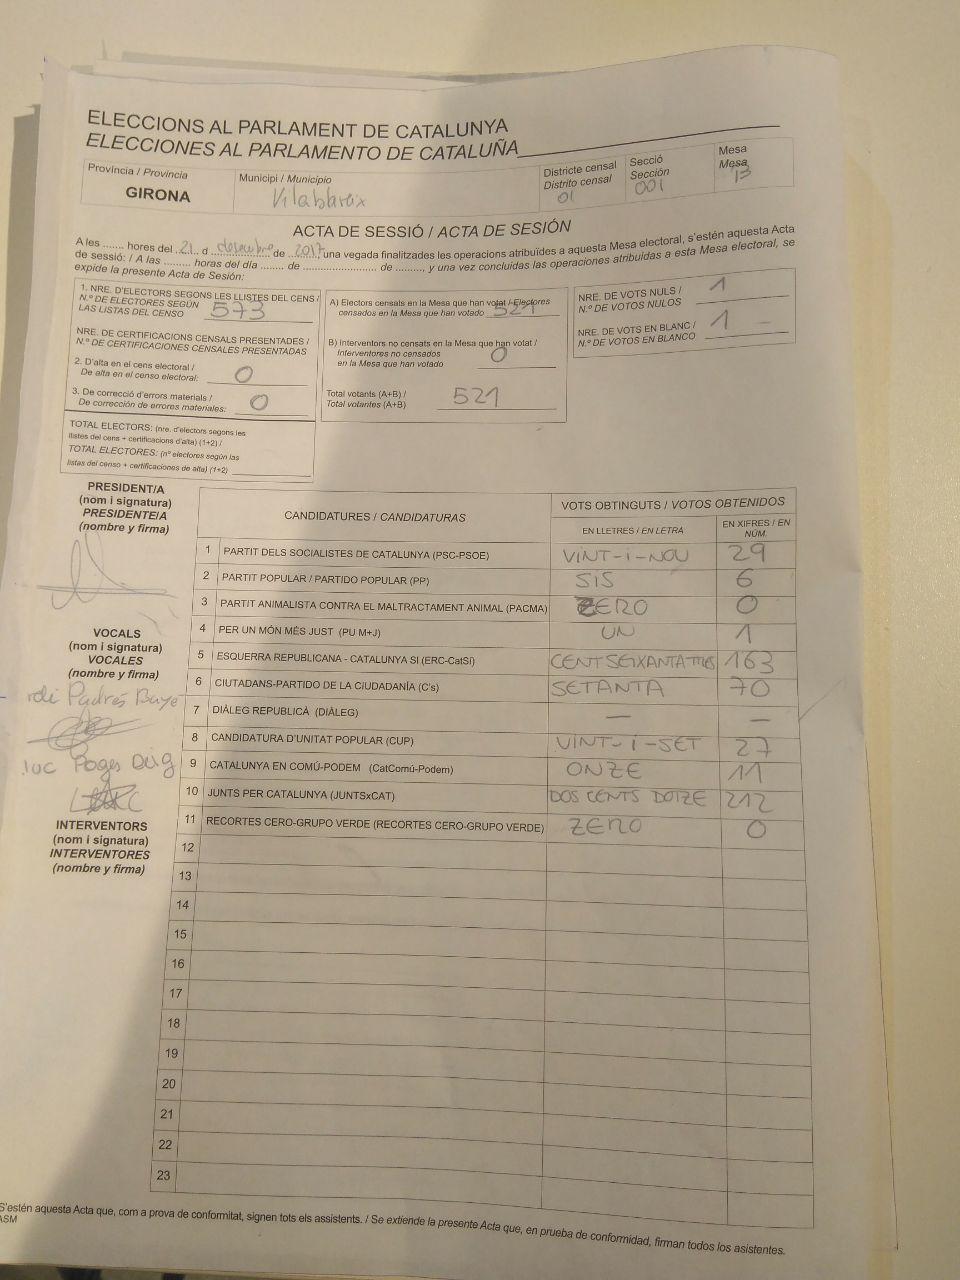 ELECCIONS AL PARLAMENT DE CATALUNYA
ELECCIONES AL PARLAMENTO DE CATALUÑA
Província / Provincia
GIRONA
Municipi / Municipio
Vilablareix
Districte censal
Distrito censal
01
Secció
Sección
001
Mesa
Mesa
ACTA DE SESSIÓ / ACTA DE SESIÓN
A les ....... hores del 21 d desembre de 2017 una vegada finalitzades les operacions atribuïdes a aquesta Mesa electoral, s'estén aquesta Acta
de sessió: / A las ......... horas del día ....... de ......................... de ........, y una vez concluidas las operaciones atribuidas a esta Mesa electoral, se
expide la presente Acta de Sesión:
1. NRE. D'ELECTORS SEGONS LES LLISTES DEL CENS /
N.º DE ELECTORES SEGÚN
LAS LISTAS DEL CENSO 573
NRE. DE CERTIFICACIONS CENSALS PRESENTADES /
N.º DE CERTIFICACIONES CENSALES PRESENTADAS
2. D'alta en el cens electoral /
De alta en el censo electoral: 0
3. De correcció d'errors materials /
De corrección de errores materiales: 0
TOTAL ELECTORS: (nre. d'electors segons les
llistes del cens + certificacions d'alta) (1+2) /
TOTAL ELECTORES: (nº electores según las
listas del censo + certificaciones de alta) (1+2)
A) Electors censats en la Mesa que han votat / Electores
censados en la Mesa que han votado 521
B) Interventors no censats en la Mesa que han votat /
Interventores no censados
en la Mesa que han votado 0
Total votants (A+B) /
Total votantes (A+B) 521
NRE. DE VOTS NULS /
N.º DE VOTOS NULOS 1
NRE. DE VOTS EN BLANC /
N.º DE VOTOS EN BLANCO 1
PRESIDENT/A
(nom i signatura)
PRESIDENTE/A
(nombre y firma)
VOCALS
(nom i signatura)
VOCALES
(nombre y firma)
Padrés
INTERVENTORS
(nom i signatura)
INTERVENTORES
(nombre y firma)
CANDIDATURES / CANDIDATURAS
VOTS OBTINGUTS / VOTOS OBTENIDOS
EN LLETRES / EN LETRA
EN XIFRES / EN
NÚM.
1 PARTIT DELS SOCIALISTES DE CATALUNYA (PSC-PSOE) VINT-i-NOU 29
2 PARTIT POPULAR / PARTIDO POPULAR (PP) SIS 6
3 PARTIT ANIMALISTA CONTRA EL MALTRACTAMENT ANIMAL (PACMA) ZERO 0
4 PER UN MÓN MÉS JUST (PU M+J) UN 1
5 ESQUERRA REPUBLICANA - CATALUNYA SI (ERC-CatSí) CENT SEIXANTA TRES 163
6 CIUTADANS-PARTIDO DE LA CIUDADANÍA (C's) SETANTA 70
7 DIÀLEG REPUBLICÀ (DIÀLEG) — —
8 CANDIDATURA D'UNITAT POPULAR (CUP) VINT-i-SET 27
9 CATALUNYA EN COMÚ-PODEM (CatComú-Podem) ONZE 11
10 JUNTS PER CATALUNYA (JUNTSxCAT) DOS CENTS DOTZE 212
11 RECORTES CERO-GRUPO VERDE (RECORTES CERO-GRUPO VERDE) ZERO 0
12
13
14
15
16
17
18
19
20
21
22
23
S'estén aquesta Acta que, com a prova de conformitat, signen tots els assistents. / Se extiende la presente Acta que, en prueba de conformidad, firman todos los asistentes.
ASM